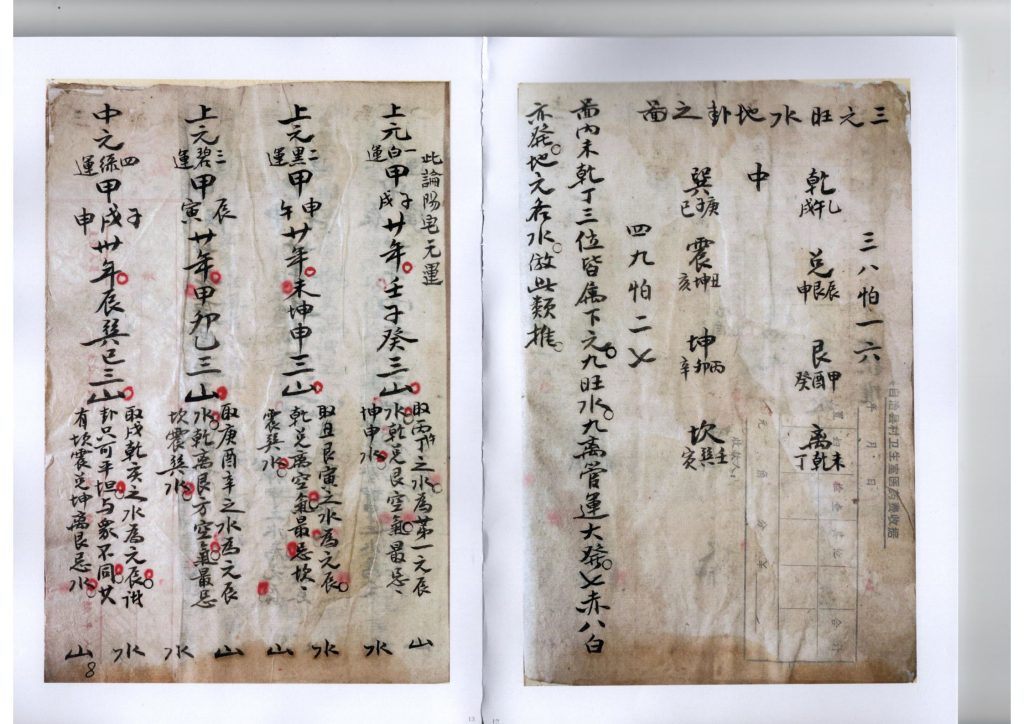 三元旺水地卦之啚
三八怕一六
乾 乙午戌
兌 辰艮申
艮 甲酉癸
离 未乾丁
中
巽 庚子巳
震 丑坤亥
坤 丙卯辛
坎 壬巽寅
四九怕二七
啚內未乾丁三位皆為下元九旺水九离管運大發七赤八白
亦發地元各水倣此類推
此論陽宅元運
上元一白運甲子戌廿年壬子癸三山
取丙午丁之水為第一元辰
水乾兌艮空氣最忌
坤申水
上元二黑運甲申午廿年未坤申三山
取丑艮寅之水為元辰
乾兌离空氣最忌坎
震巽水
上元三碧運甲辰寅廿年甲卯乙三山
取庚酉辛之水為元辰
水乾离艮方空氣最忌
坎震巽水
中元四綠運甲子戌申卅年辰巽巳三山
取戌乾亥之水為元辰
卦只可平坦与眾不同其
有坎震兌坤离艮忌水
山 水 水 山 山 水 水 山
8